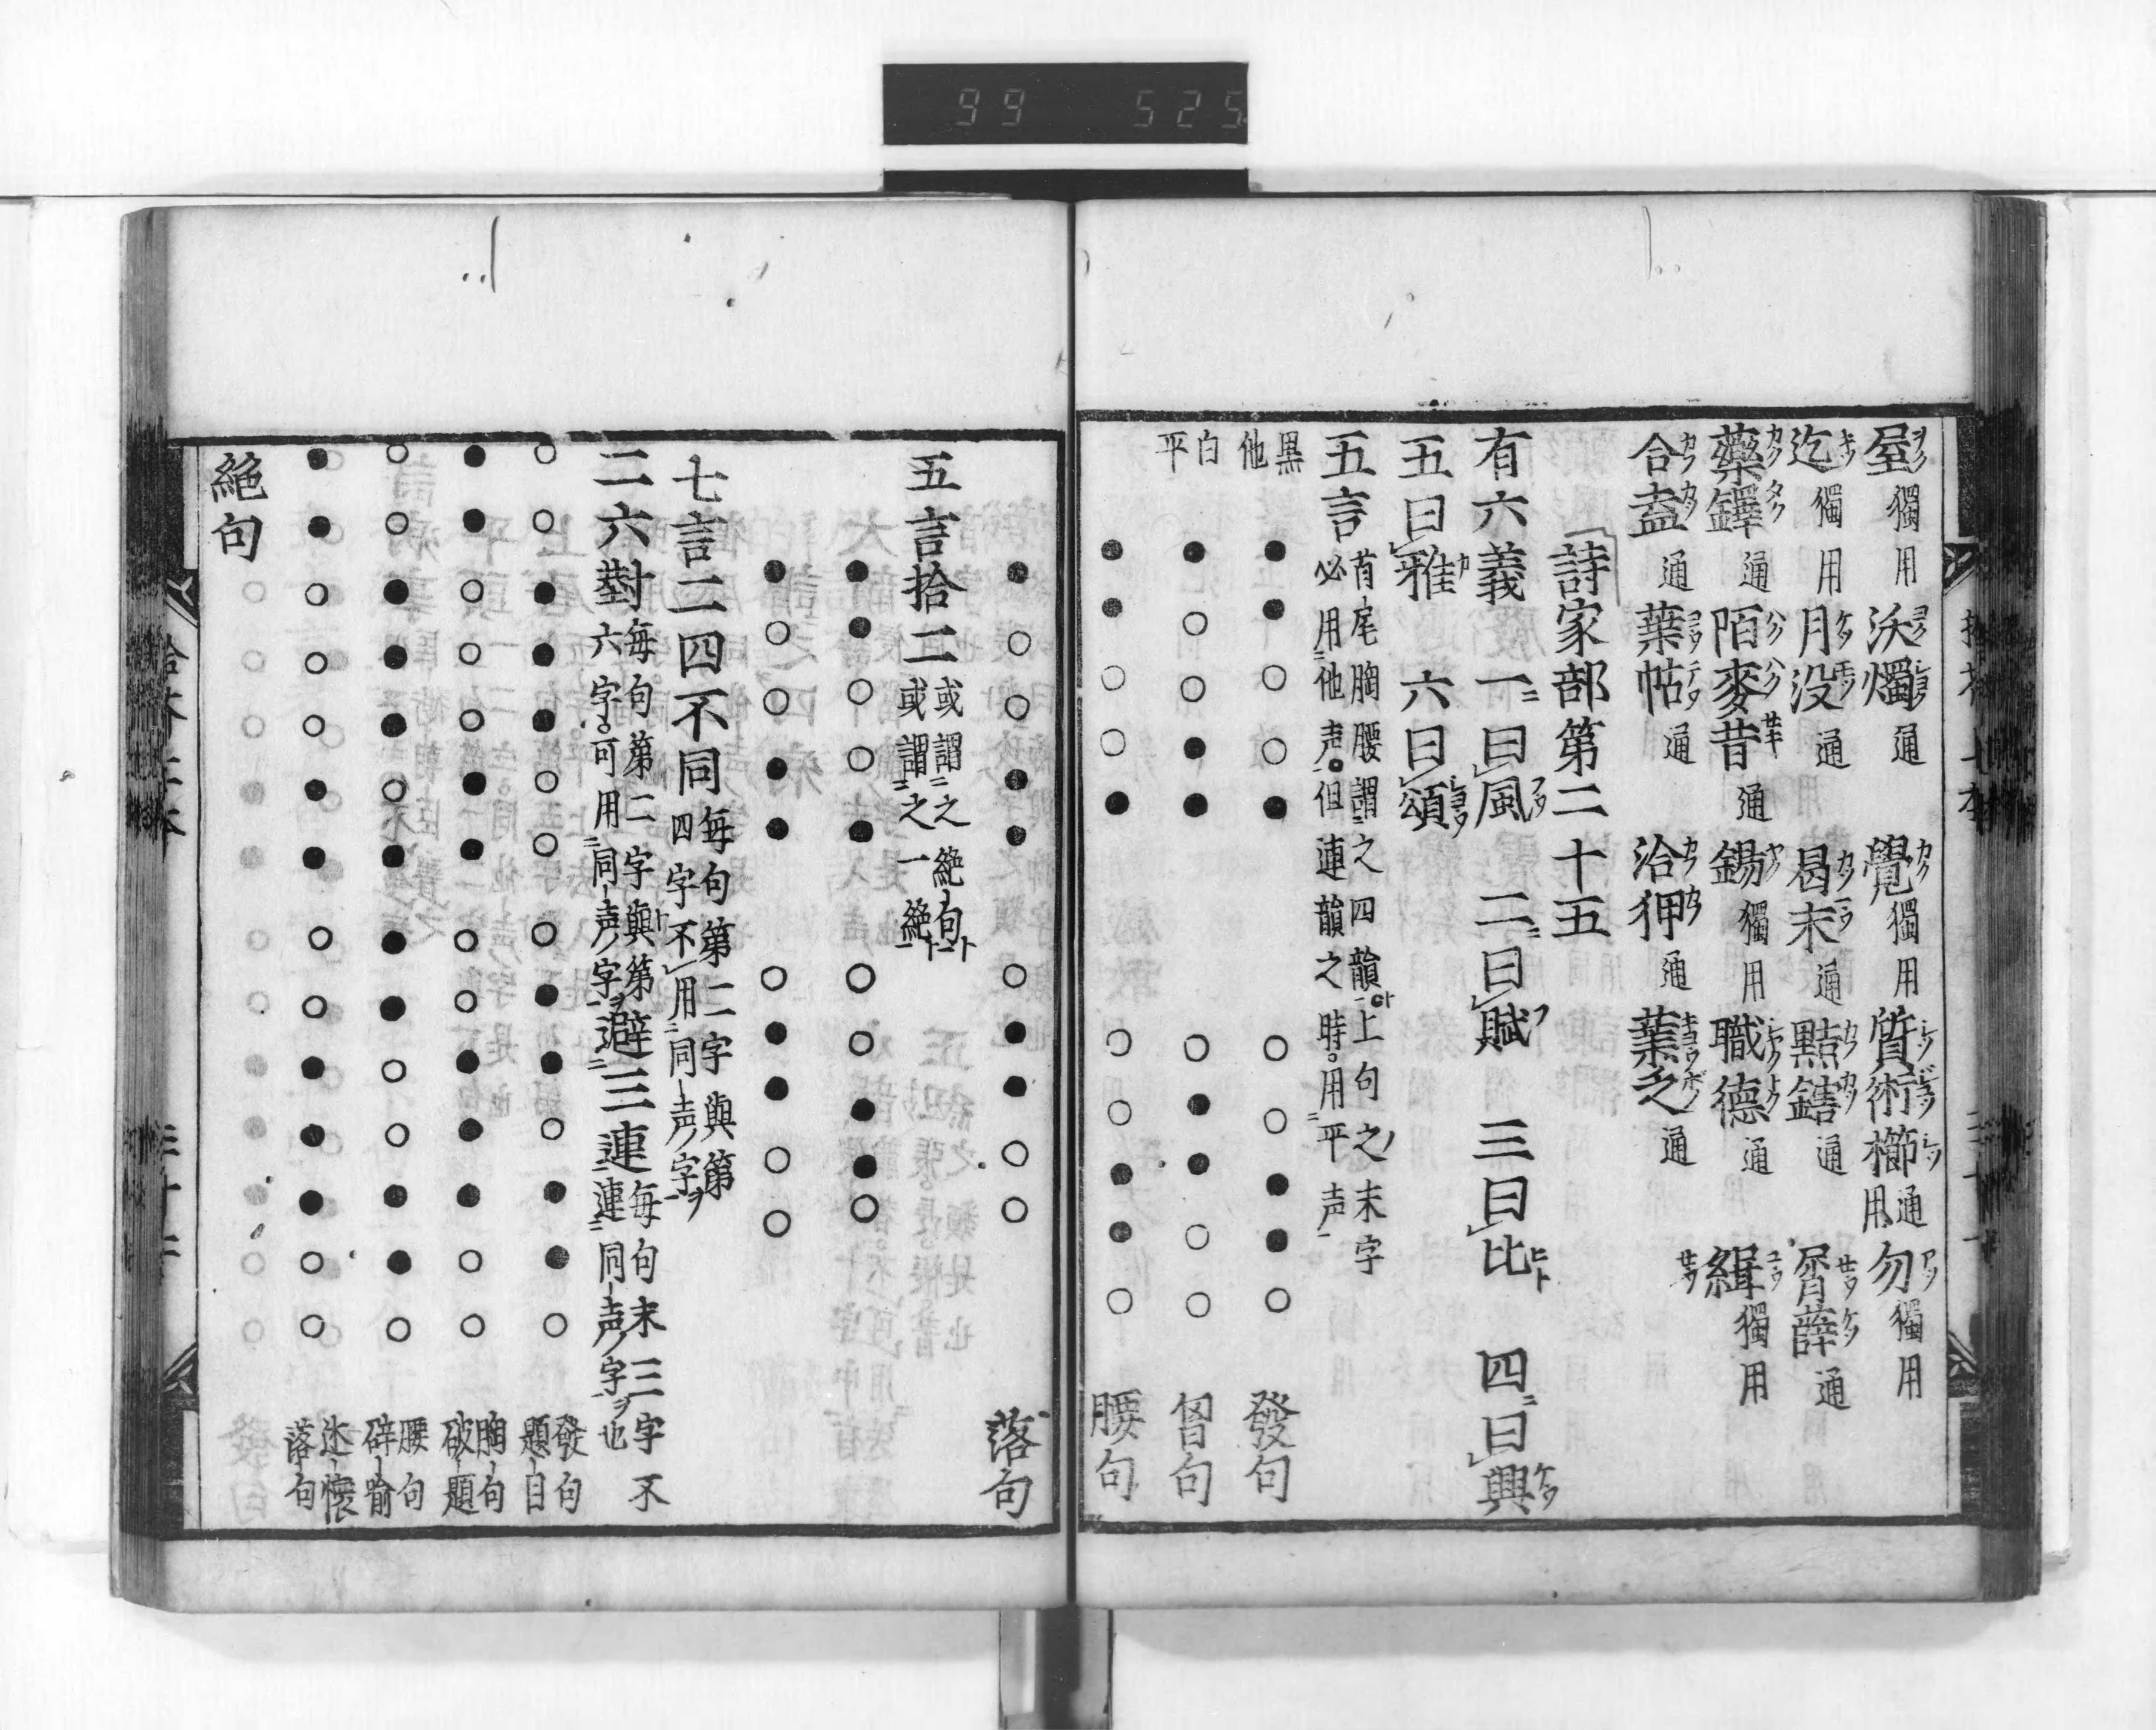 99 525
屋獨用 沃燭通 覺獨用 質術櫛通用 勿獨用
迄獨用 月没通 曷末通 黠鎋通 屑薛通
藥鐸通 陌麥昔通 錫獨用 職德通 緝獨用
合盍通 葉帖通 洽狎通 業乏通
詩家部第二十五
有六義 一曰風 二曰賦 三曰比 四曰興
五曰雅 六曰頌
五言 首尾胸腰謂之四韻上句之末字
必用他声但連韻之時用平声
黒他 ●●○○● ○○●●○ 發句
白平 ●○○●● ○●●○○ 胷句
●●○○● ○○●●○ 腰句
●○○●● ○●●○○ 落句
五言拾二 或謂之絶句
或謂之一絶
●●○○● ○○●●○
●○○●● ○●●○○
七言二四不同 每句第二字與第
四字不用同声字
二六對 每句第二字與第
六字可用同声字 避三連 每句末三字不
連同声字也
○○●●●○○ ○●○●●○ 發句 題目
●●○○○●● ○○●●●○○ 胸句 破題
○○●●●○● ●●○○●●○ 腰句
●●○○○●● ○○●●●○○ 落句
絶句